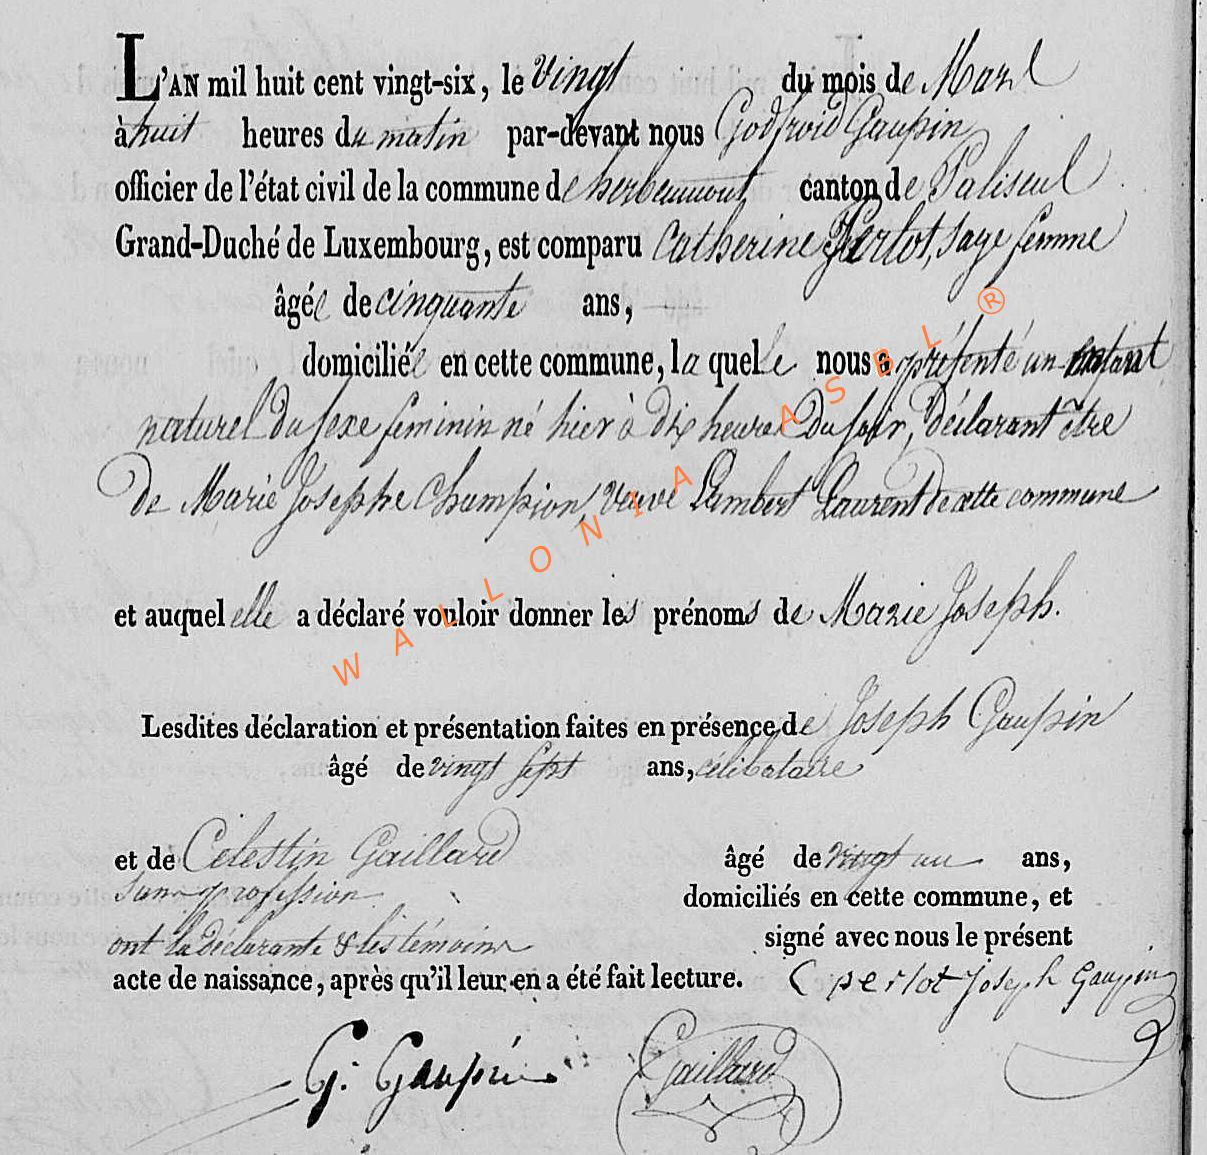 L'AN mil huit cent vingt-six, le vingt du mois de Mars
à huit heures du matin par-devant nous Godfroid Gaupin
officier de l'état civil de la commune de herbeumont canton de Paliseul
Grand-Duché de Luxembourg, est comparu Catherine Perlot, sage femme
âgée de cinquante ans,
domiciliée en cette commune, la quelle nous a présenté un enfant
naturel du sexe feminin né hier à dix heures du soir, déclarant être
de Marie Josephe Champion, veuve Lambert Laurent de cette commune
et auquel elle a déclaré vouloir donner les prénoms de Marie Joseph.
Lesdites déclaration et présentation faites en présence de Joseph Gaupin
âgé de vingt sept ans, célibataire
et de Celestin Gaillard âgé de vingt un ans,
sans profession domiciliés en cette commune, et
ont la déclarante & les témoins signé avec nous le présent
acte de naissance, après qu'il leur en a été fait lecture. C perlot Joseph Gaupin
G. Gaupin Gaillard
WALLONIA ASBL ®